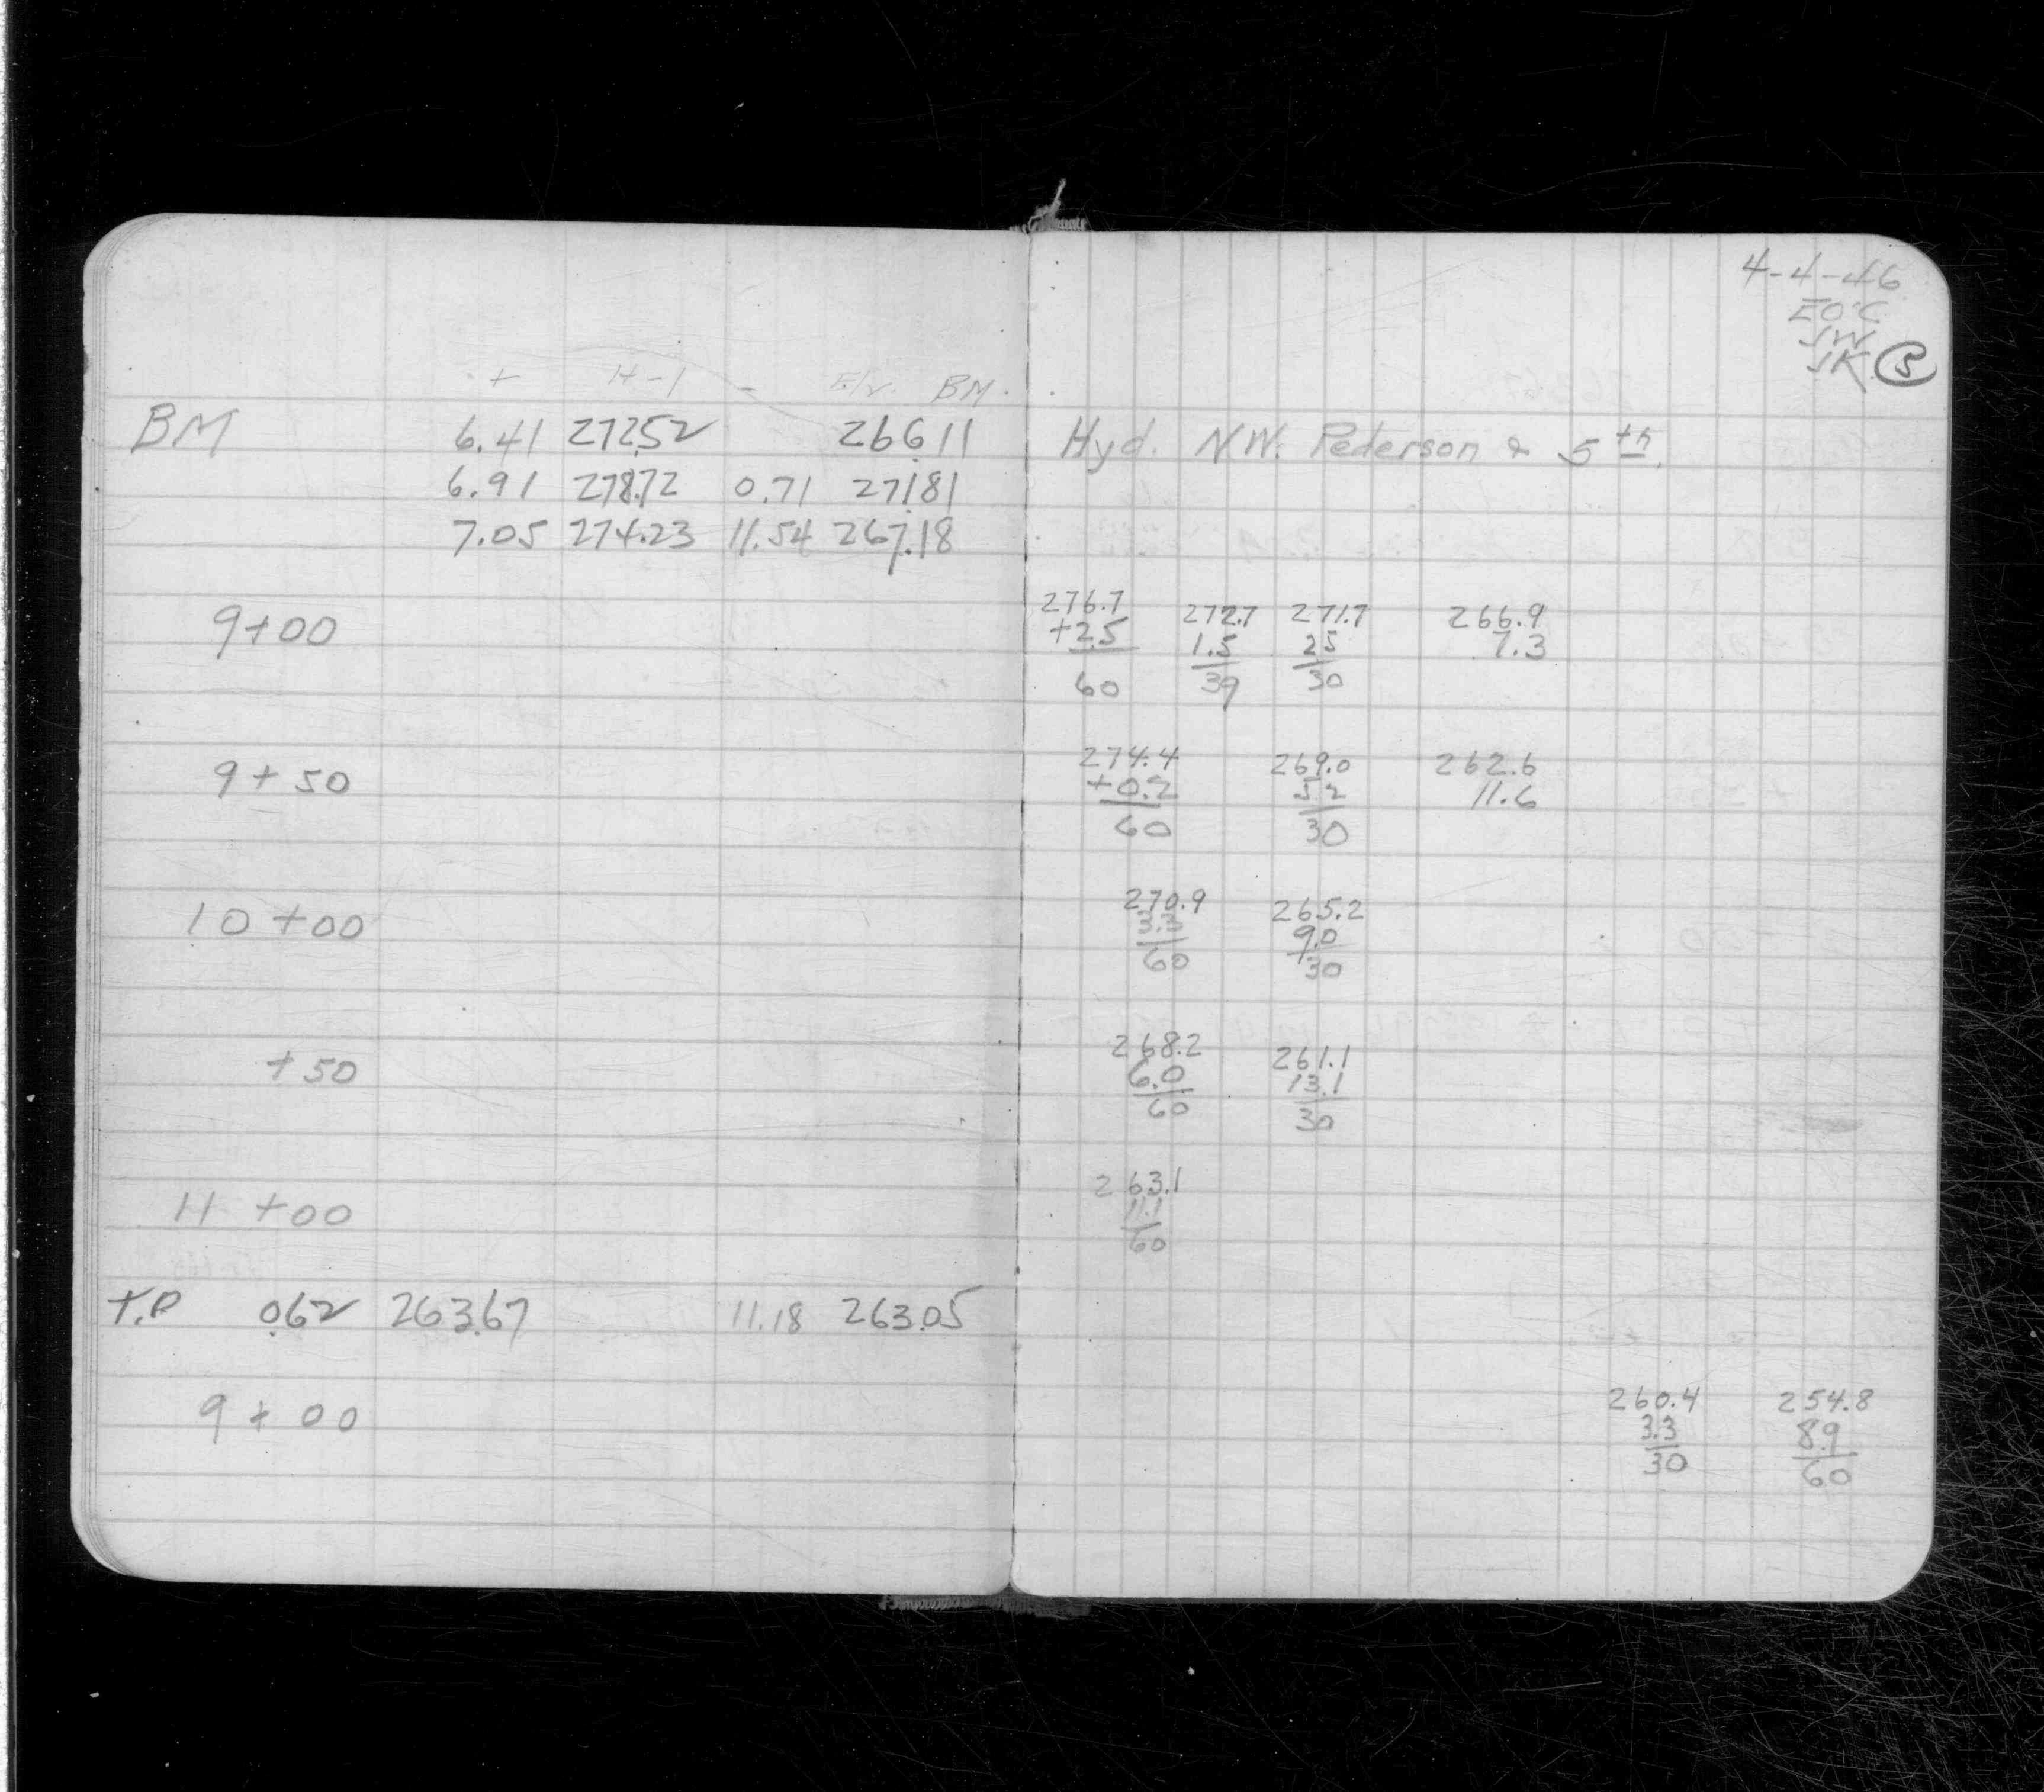 + H-I - Elv. BM.
BM 6.41 272.52 266.11
6.91 278.72 0.71 271.81
7.05 274.23 11.54 267.18
9+00
9+50
10+00
+50
11+00
T.P 0.62 263.67 11.18 263.05
9+00
4-4-46
EO'C
JW
JK 5
Hyd. NW. Pederson & 5th.
276.7 272.7 271.7 266.9
+2.5 1.5 2.5 7.3
60 39 30
274.4 269.0 262.6
+0.2 5.2 11.6
60 30
270.9 265.2
3.3 9.0
60 30
268.2 261.1
6.0 13.1
60 30
263.1
11.1
60
260.4 254.8
3.3 8.9
30 60